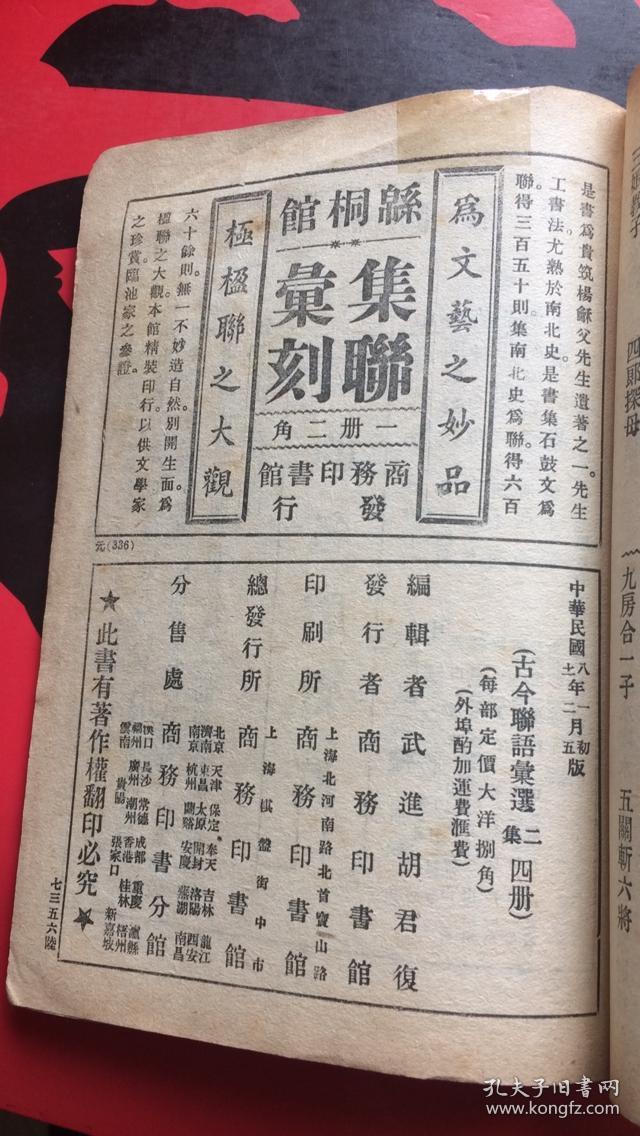 是書爲貴筑楊龢父先生遺著之一。先生
工書法。尤熟於南北史。是書集石鼓文爲
聯。得三百五十則。集南北史爲聯。得六百
爲文藝之妙品
緜桐館
集聯
彙刻
一册二角
商務印書館
發行
極楹聯之大觀
六十餘則。無一不妙造自然。別開生面。爲
楹聯之大觀。本館精裝印行。以供文學家
之珍賞。臨池家之參證。
元(336)
中華民國八年一月初版
十一年二月五版
(古今聯語彙選二集四册)
(每部定價大洋捌角)
(外埠酌加運費匯費)
編輯者 武進胡君復
發行者 商務印書館
上海北河南路北首寶山路
印刷所 商務印書館
上海棋盤街中市
總發行所 商務印書館
分售處 商務印書分館
北京 天津 保定 奉天 吉林 龍江
濟南 東昌 太原 開封 洛陽 西安
南京 杭州 蘭谿 安慶 蕪湖 南昌
漢口 長沙 常德 成都 重慶 瀘縣
福州 廣州 潮州 香港 桂林 梧州
雲南 貴陽 張家口 新嘉坡
★此書有著作權翻印必究★
七三五六陸
四郎探母
九房合一子
五關斬六將
孔夫子旧书网
www.kongfz.com